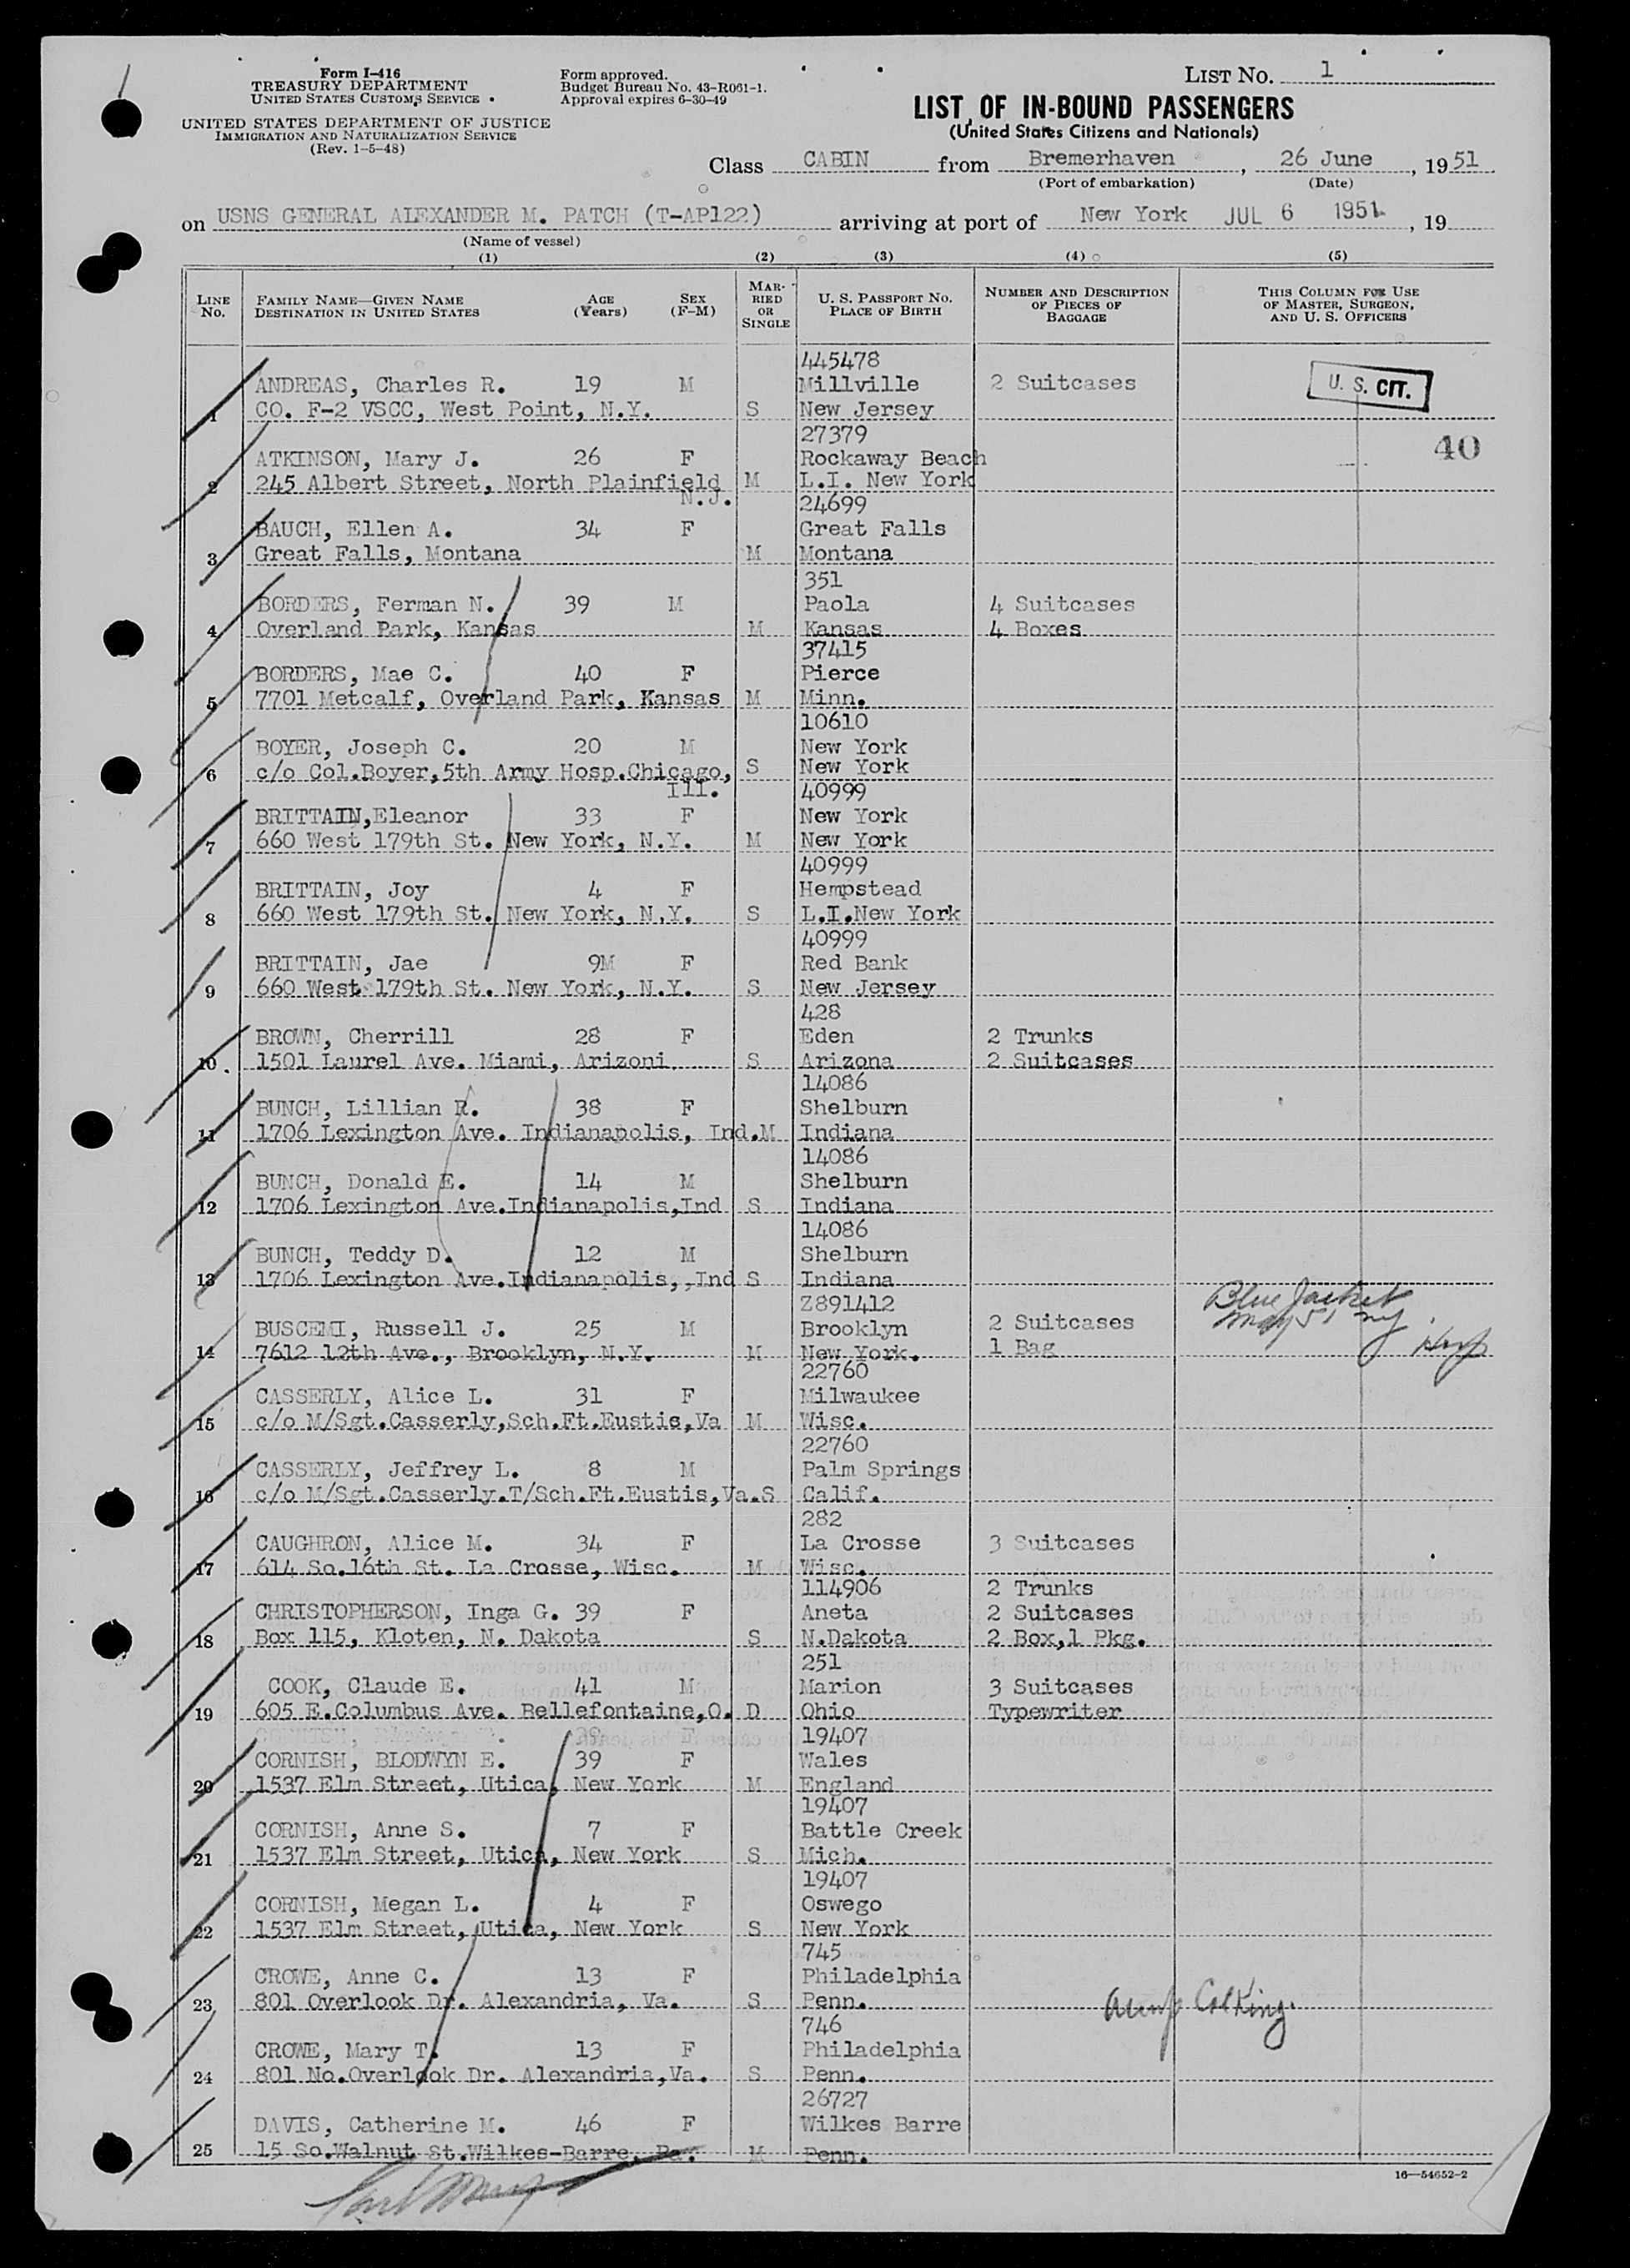 Form I-416
TREASURY DEPARTMENT
UNITED STATES CUSTOMS SERVICE
UNITED STATES DEPARTMENT OF JUSTICE
IMMIGRATION AND NATURALIZATION SERVICE
(Rev. 1-5-48)
Form approved.
Budget Bureau No. 43-R061-1.
Approval expires 6-30-49
LIST NO. 1
LIST OF IN-BOUND PASSENGERS
(United States Citizens and Nationals)
Class CABIN from Bremerhaven, 26 June, 1951
(Port of embarkation) (Date)
on USNS GENERAL ALEXANDER M. PATCH (T-AP122) arriving at port of New York JUL 6 1951, 19
(Name of vessel)
(1) (2) (3) (4) (5)
LINE NO. FAMILY NAME—GIVEN NAME DESTINATION IN UNITED STATES AGE (Years) SEX (F-M) MARRIED OR SINGLE U. S. PASSPORT NO. PLACE OF BIRTH NUMBER AND DESCRIPTION OF PIECES OF BAGGAGE THIS COLUMN FOR USE OF MASTER, SURGEON, AND U. S. OFFICERS
445478
ANDREAS, Charles R. 19 M Millville 2 Suitcases U. S. CIT.
1 CO. F-2 VSCC, West Point, N.Y. S New Jersey
27379 40
ATKINSON, Mary J. 26 F Rockaway Beach
2 245 Albert Street, North Plainfield M L.I. New York
N.J. 24699
BAUCH, Ellen A. 34 F Great Falls
3 Great Falls, Montana M Montana
351
BORDERS, Ferman N. 39 M Paola 4 Suitcases
4 Overland Park, Kansas M Kansas 4 Boxes
37415
BORDERS, Mae C. 40 F Pierce
5 7701 Metcalf, Overland Park, Kansas M Minn.
10610
BOYER, Joseph C. 20 M New York
6 c/o Col.Boyer,5th Army Hosp.Chicago, S New York
Ill. 40999
BRITTAIN,Eleanor 33 F New York
7 660 West 179th St. New York, N.Y. M New York
40999
BRITTAIN, Joy 4 F Hempstead
8 660 West 179th St. New York, N.Y. S L.I.New York
40999
BRITTAIN, Jae 9M F Red Bank
9 660 West 179th St. New York, N.Y. S New Jersey
428
BROWN, Cherrill 28 F Eden 2 Trunks
10 1501 Laurel Ave. Miami, Arizoni S Arizona 2 Suitcases
14086
BUNCH, Lillian R. 38 F Shelburn
11 1706 Lexington Ave. Indianapolis, Ind.M Indiana
14086
BUNCH, Donald E. 14 M Shelburn
12 1706 Lexington Ave.Indianapolis,Ind S Indiana
14086
BUNCH, Teddy D. 12 M Shelburn
13 1706 Lexington Ave.Indianapolis,,Ind S Indiana
Z891412 Blue Jacket
BUSCEMI, Russell J. 25 M Brooklyn 2 Suitcases May 51 NY
14 7612 12th Ave., Brooklyn, N.Y. M New York. 1 Bag
22760
CASSERLY, Alice L. 31 F Milwaukee
15 c/o M/Sgt.Casserly,Sch.Ft.Eustis,Va M Wisc.
22760
CASSERLY, Jeffrey L. 8 M Palm Springs
16 c/o M/Sgt.Casserly.T/Sch.Ft.Eustis,Va.S Calif.
282
CAUGHRON, Alice M. 34 F La Crosse 3 Suitcases
17 614 So.16th St. La Crosse, Wisc. M Wisc.
114906 2 Trunks
CHRISTOPHERSON, Inga G. 39 F Aneta 2 Suitcases
18 Box 115, Kloten, N. Dakota S N.Dakota 2 Box,1 Pkg.
251
COOK, Claude E. 41 M Marion 3 Suitcases
19 605 E.Columbus Ave. Bellefontaine,O. D Ohio Typewriter
19407
CORNISH, BLODWYN E. 39 F Wales
20 1537 Elm Street, Utica, New York M England
19407
CORNISH, Anne S. 7 F Battle Creek
21 1537 Elm Street, Utica, New York S Mich.
19407
CORNISH, Megan L. 4 F Oswego
22 1537 Elm Street, Utica, New York S New York
745
CROWE, Anne C. 13 F Philadelphia
23 801 Overlook Dr. Alexandria, Va. S Penn. Col King.
746
CROWE, Mary T. 13 F Philadelphia
24 801 No.Overlook Dr. Alexandria,Va. S Penn.
26727
DAVIS, Catherine M. 46 F Wilkes Barre
25 15 So.Walnut St.Wilkes-Barre, Pa. M Penn.
16—54652-2